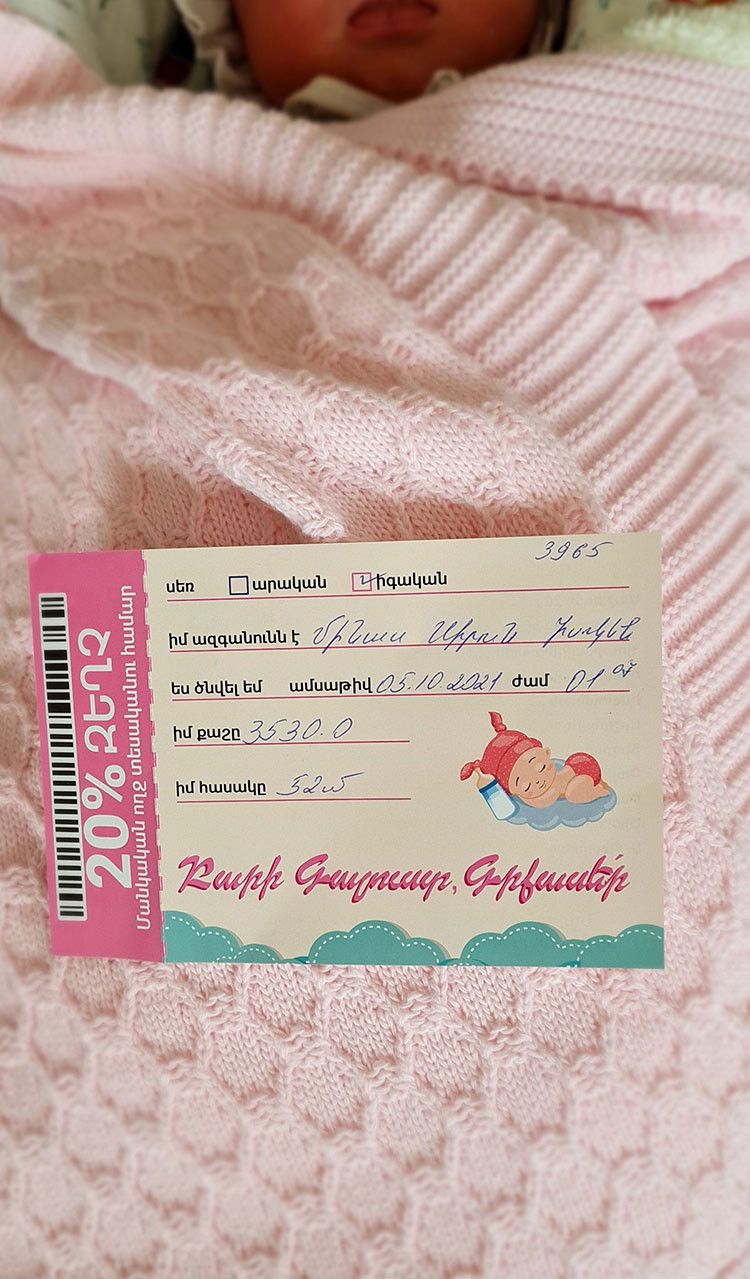 20% ԶԵՂՉ
Մանկական ողջ տեսականու համար
3965
սեռ արական իգական
իմ ազգանունն է
ես ծնվել եմ ամսաթիվ 05.10.2021 ժամ 01
իմ քաշը 3530.0
իմ հասակը 52ս
Բարի Գալուստ, Գիրխանեի՛ր